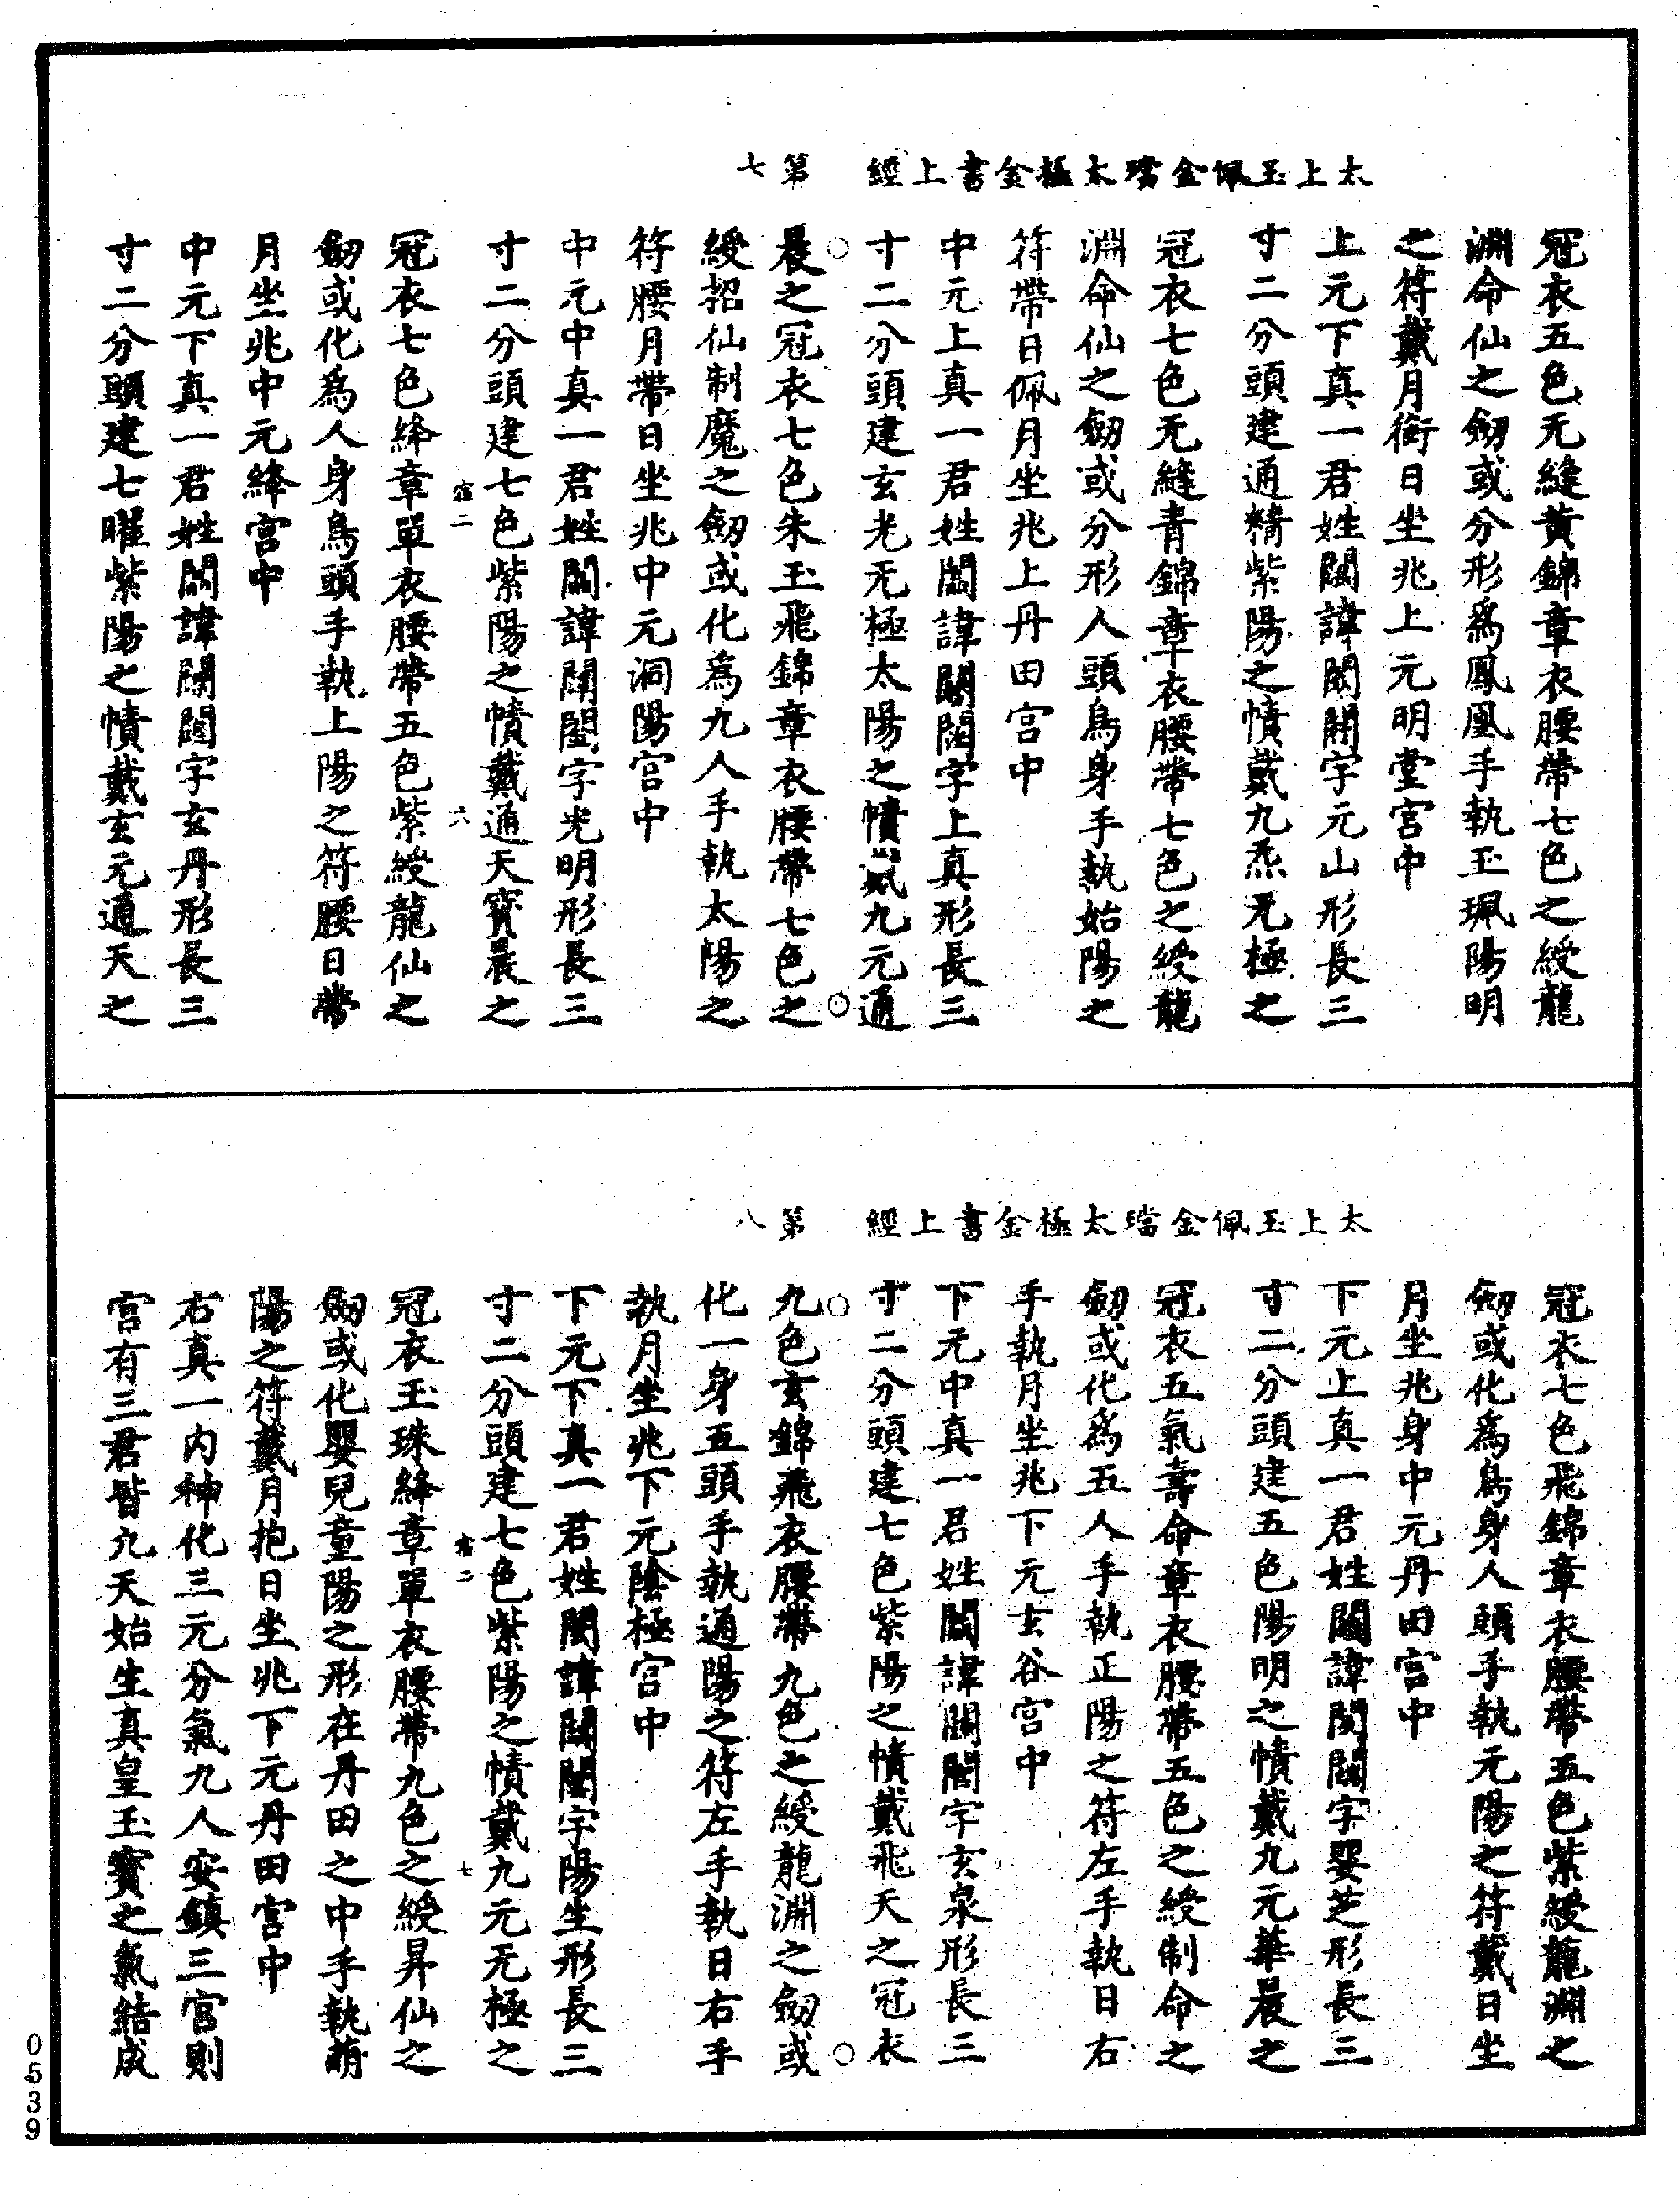 太上玉佩金璫太極金書上經 第七
冠衣五色无縫黃錦章衣腰帶七色之綬龍
淵命仙之劒或分形爲鳳凰手執玉珮陽明
之符戴月銜日坐兆上元明堂宮中
上元下真一君姓諱字元山形長三
寸二分頭建通精紫陽之幘戴九炁无極之
冠衣七色无縫青錦章衣腰帶七色之綬龍
淵命仙之劒或分形人頭鳥身手執始陽之
符帶日佩月坐兆上丹田宮中
中元上真一君姓諱字上真形長三
寸二分頭建玄光无極太陽之幘戴九元通
晨之冠衣七色朱玉飛錦章衣腰帶七色之
綬招仙制魔之劒或化爲九人手執太陽之
符腰月帶日坐兆中元洞陽宮中
中元中真一君姓諱字光明形長三
寸二分頭建七色紫陽之幘戴通天寶晨之
二 六
冠衣七色絳章單衣腰帶五色紫綬龍仙之
劒或化爲人身鳥頭手執上陽之符腰日帶
月坐兆中元絳宮中
中元下真一君姓諱字玄丹形長三
寸二分頭建七曜紫陽之幘戴玄元通天之
太上玉佩金璫太極金書上經 第八
冠衣七色飛錦章衣腰帶五色紫綬龍淵之
劒或化爲鳥身人頭手執元陽之符戴日坐
月坐兆身中元丹田宮中
下元上真一君姓諱字嬰芝形長三
寸二分頭建五色陽明之幘戴九元華晨之
冠衣五氣壽命章衣腰帶五色之綬制命之
劒或化爲五人手執正陽之符左手執日右
手執月坐兆下元玄谷宮中
下元中真一君姓諱字玄泉形長三
寸二分頭建七色紫陽之幘戴飛天之冠衣
九色玄錦飛衣腰帶九色之綬龍淵之劒或
化一身五頭手執通陽之符左手執日右手
執月坐兆下元陰極宮中
下元下真一君姓諱字陽生形長三
寸二分頭建七色紫陽之幘戴九元无極之
二 七
冠衣玉珠絳章單衣腰帶九色之綬昇仙之
劒或化嬰兒童陽之形在丹田之中手執萌
陽之符戴月抱日坐兆下元丹田宮中
右真一内神化三元分氣九人安鎮三官則
宮有三君皆九天始生真皇玉寶之氣結成
0539